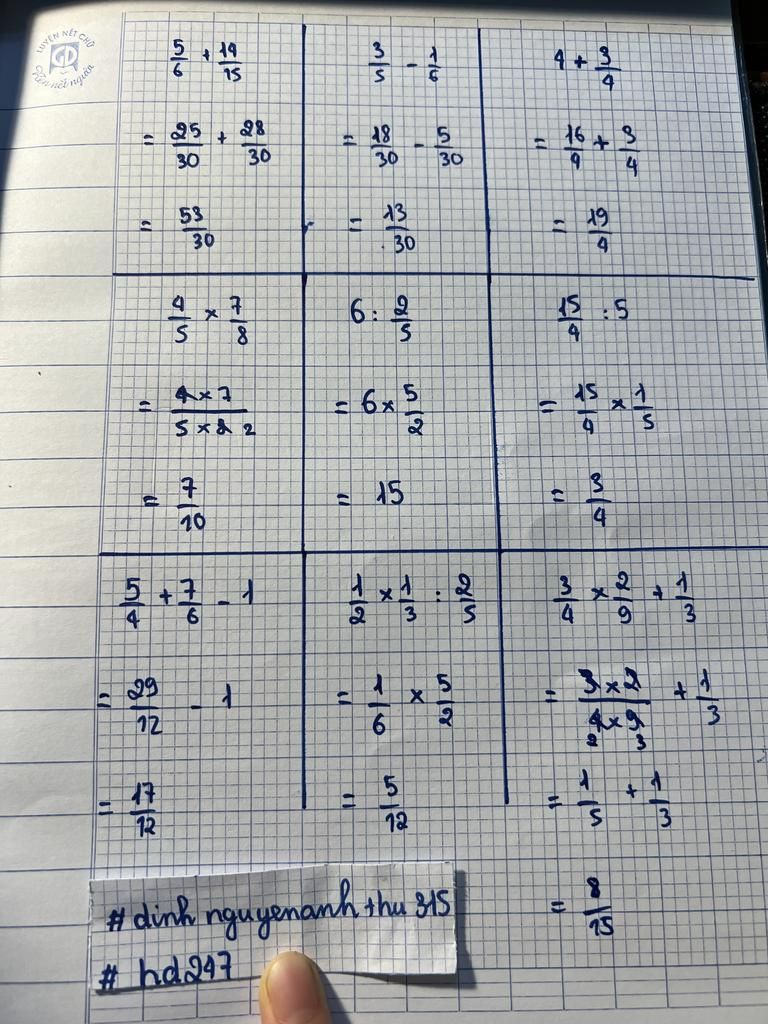 LUYỆN NÉT CHỮ
GD
Rèn nết người
5/6 + 14/15
= 25/30 + 28/30
= 53/30
3/5 - 1/6
= 18/30 - 5/30
= 13/30
4 + 3/4
= 16/4 + 3/4
= 19/4
4/5 × 7/8
= 4 × 7 / 5 × 8 2
= 7/10
6 : 2/5
= 6 × 5/2
= 15
15/4 : 5
= 15/4 × 1/5
= 3/4
5/4 + 7/6 - 1
= 29/12 - 1
= 17/12
1/2 × 1/3 : 2/5
= 1/6 × 5/2
= 5/12
3/4 × 2/9 + 1/3
= 3 × 2 / 4 × 9 + 1/3
2 3
= 1/5 + 1/3
= 8/15
# dinh nguyenanh thu 315
# hd247